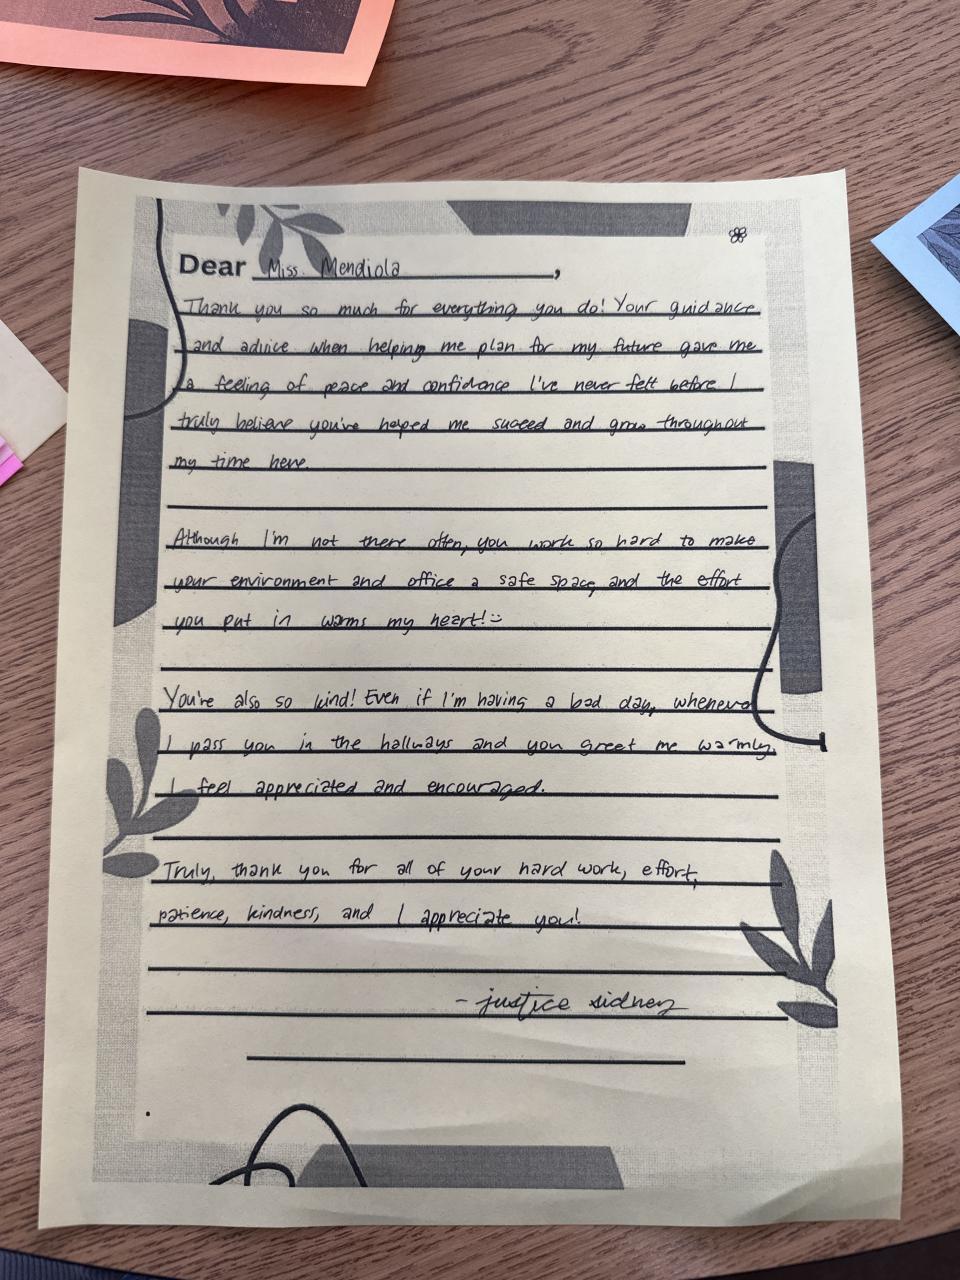 Dear Miss Mendiola,
Thank you so much for everything you do! Your guidance
and advice when helping me plan for my future gave me
a feeling of peace and confidance I've never felt before I
truly believe you've helped me succeed and grow throughout
my time here.
Although I'm not there often, you work so hard to make
your environment and office a safe space, and the effort
you put in warms my heart! :)
You're also so kind! Even if I'm having a bad day, whenever
I pass you in the hallways and you greet me warmly,
I feel appreciated and encouraged.
Truly, thank you for all of your hard work, effort,
patience, kindness, and I appreciate you!
- justice sidney